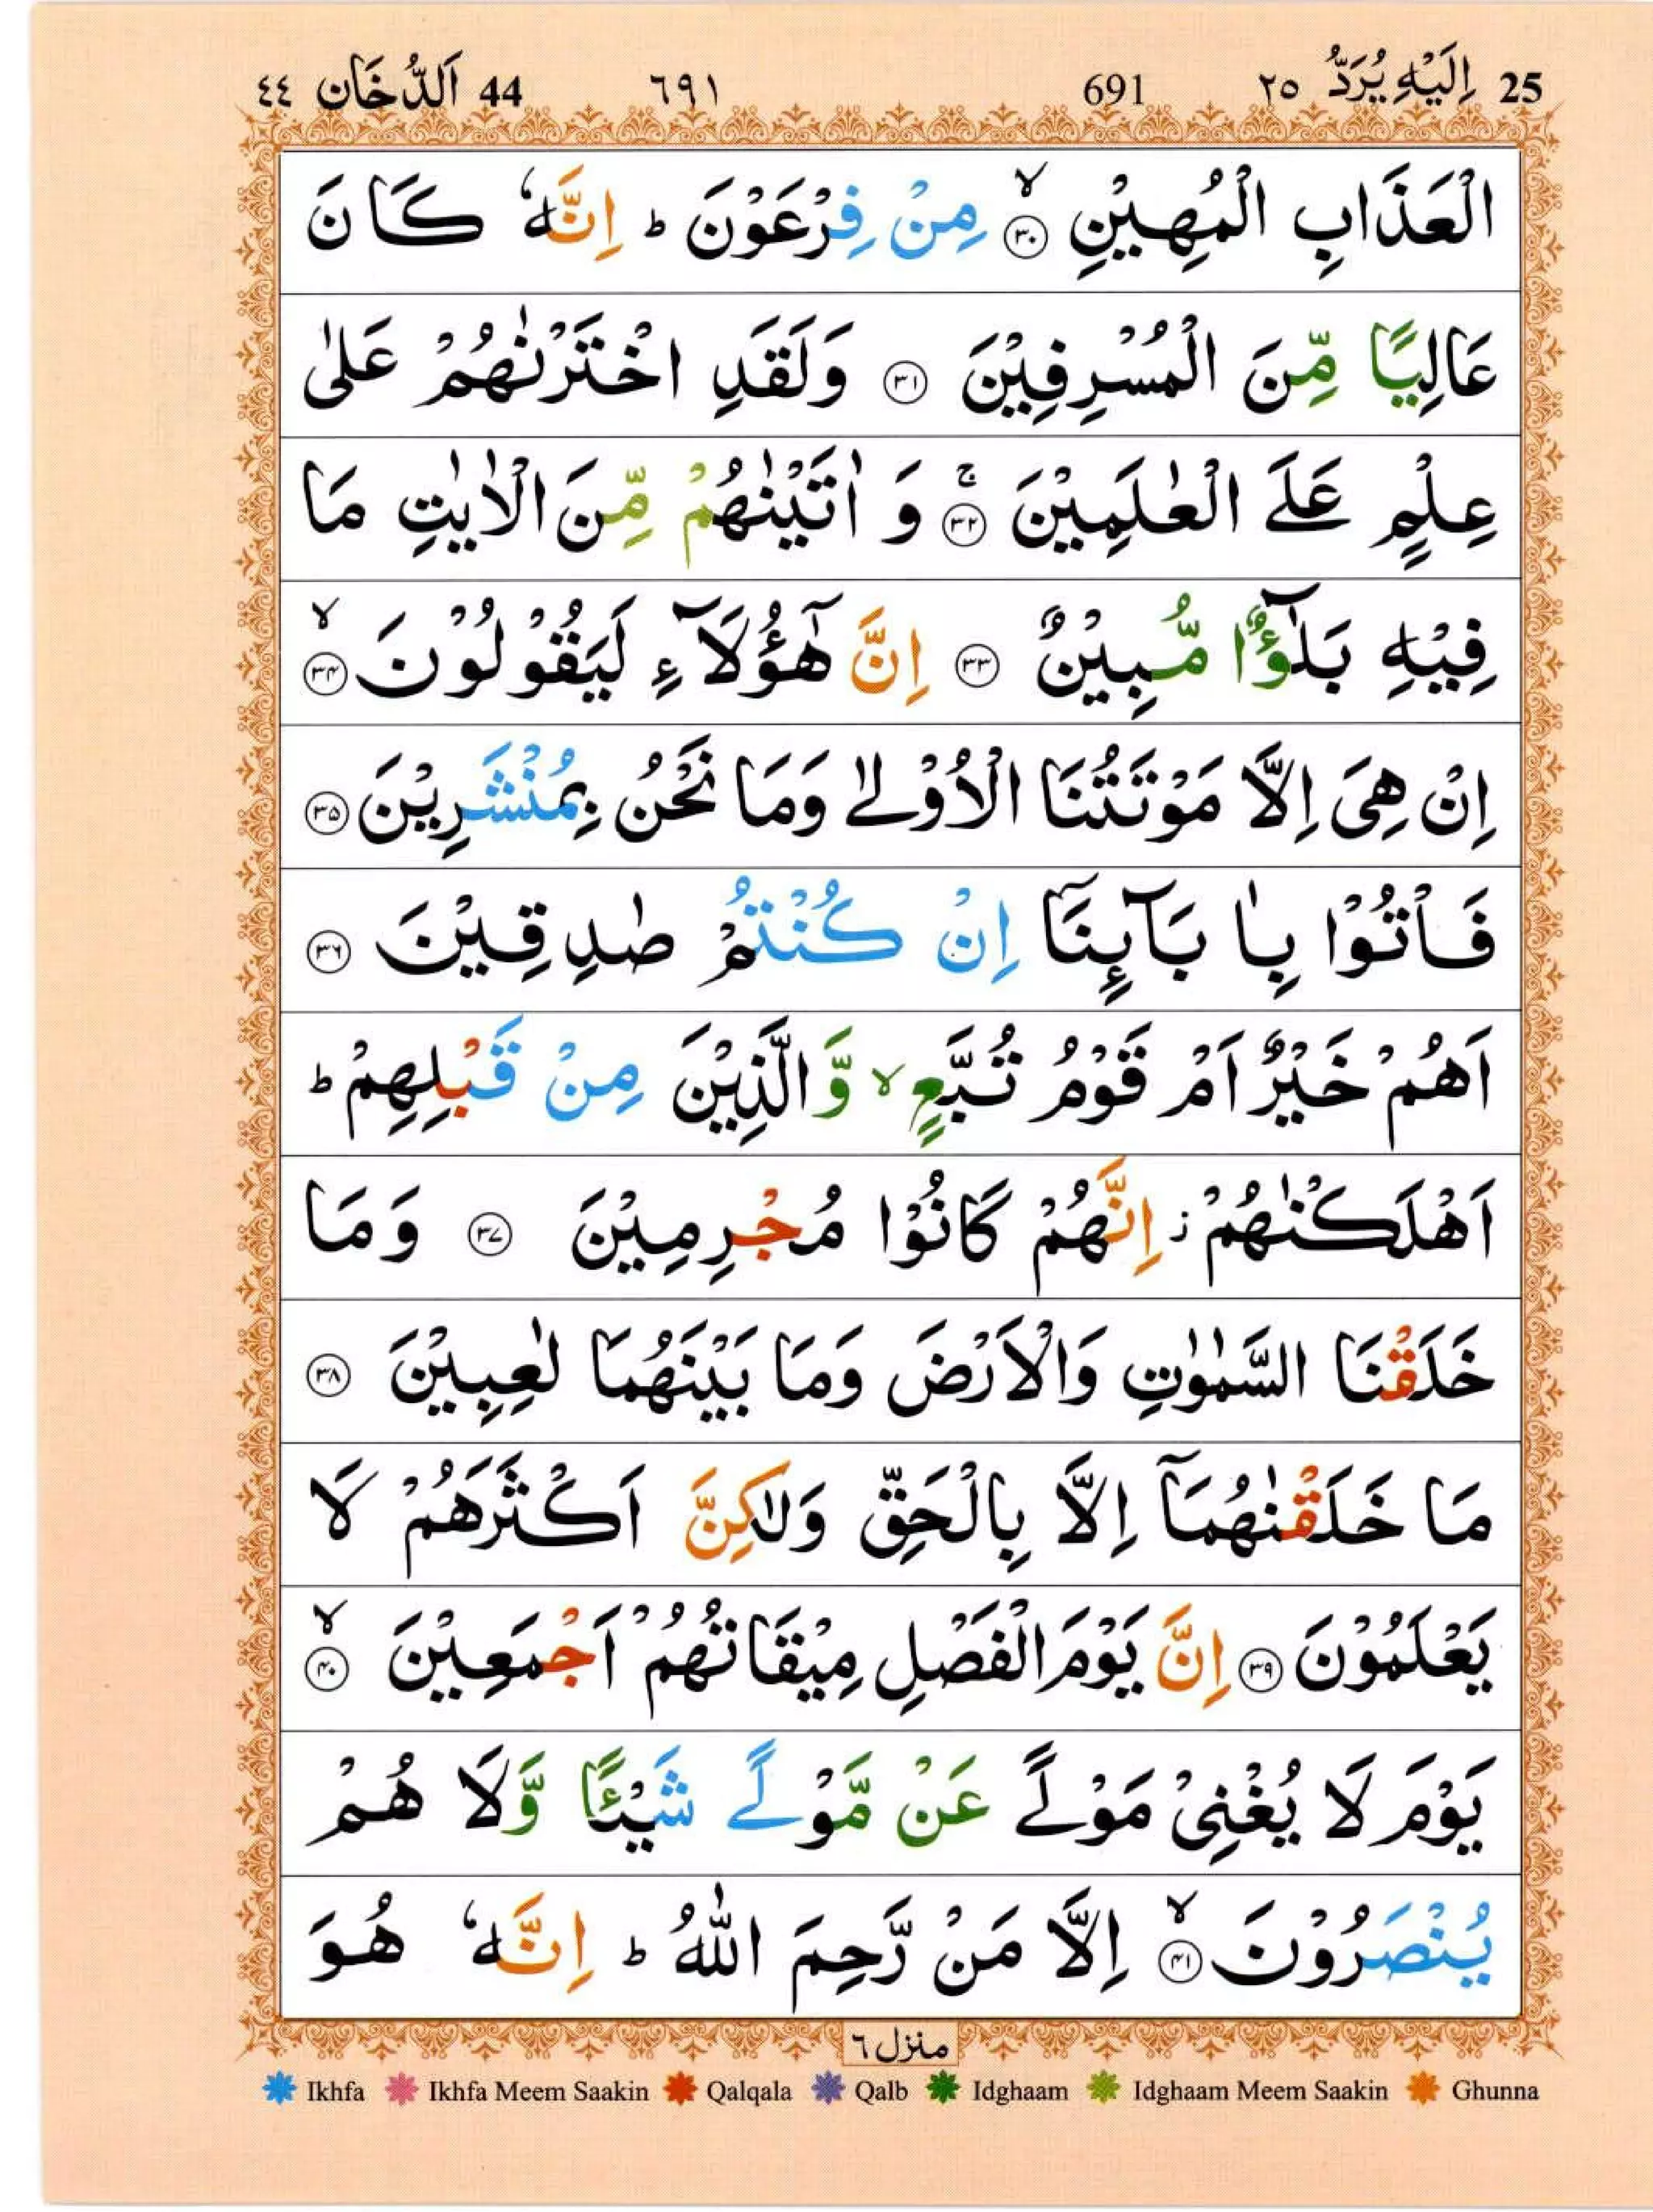 25 اِلَيْهِ يُرَدُّ ٢٥ 691 ٦٩١ 44 اَلدُّخَان ٤٤
الْعَذَابِ الْمُهِيْنِ ۙ﴿۳۰﴾ مِنْ فِرْعَوْنَ ؕ اِنَّهٗ كَانَ
عَالِيًا مِّنَ الْمُسْرِفِيْنَ ﴿۳۱﴾ وَلَقَدِ اخْتَرْنٰهُمْ عَلٰى
عِلْمٍ عَلَى الْعٰلَمِيْنَ ۚ﴿۳۲﴾ وَ اٰتَيْنٰهُمْ مِّنَ الْاٰيٰتِ مَا
فِيْهِ بَلٰٓؤٌا مُّبِيْنٌ ﴿۳۳﴾ اِنَّ هٰٓؤُلَآءِ لَيَقُوْلُوْنَ ۙ﴿۳۴﴾
اِنْ هِىَ اِلَّا مَوْتَتُنَا الْاُوْلٰى وَمَا نَحْنُ بِمُنْشَرِيْنَ ﴿۳۵﴾
فَاْتُوْا بِاٰ بَآئِنَآ اِنْ كُنْتُمْ صٰدِقِيْنَ ﴿۳۶﴾
اَهُمْ خَيْرٌ اَمْ قَوْمُ تُبَّعٍ ۙ وَّالَّذِيْنَ مِنْ قَبْلِهِمْ ؕ
اَهْلَكْنٰهُمْ ز اِنَّهُمْ كَانُوْا مُجْرِمِيْنَ ﴿۳۷﴾ وَمَا
خَلَقْنَا السَّمٰوٰتِ وَالْاَرْضَ وَمَا بَيْنَهُمَا لٰعِبِيْنَ ﴿۳۸﴾
مَا خَلَقْنٰهُمَآ اِلَّا بِالْحَقِّ وَلٰكِنَّ اَكْثَرَهُمْ لَا
يَعْلَمُوْنَ ﴿۳۹﴾ اِنَّ يَوْمَ الْفَصْلِ مِيْقَاتُهُمْ اَجْمَعِيْنَ ۙ﴿۴۰﴾
يَوْمَ لَا يُغْنِىْ مَوْلًى عَنْ مَّوْلًى شَيْئًا وَّلَا هُمْ
يُنْصَرُوْنَ ۙ﴿۴۱﴾ اِلَّا مَنْ رَّحِمَ اللّٰهُ ؕ اِنَّهٗ هُوَ
منزل ٦
Ikhfa Ikhfa Meem Saakin Qalqala Qalb Idghaam Idghaam Meem Saakin Ghunna